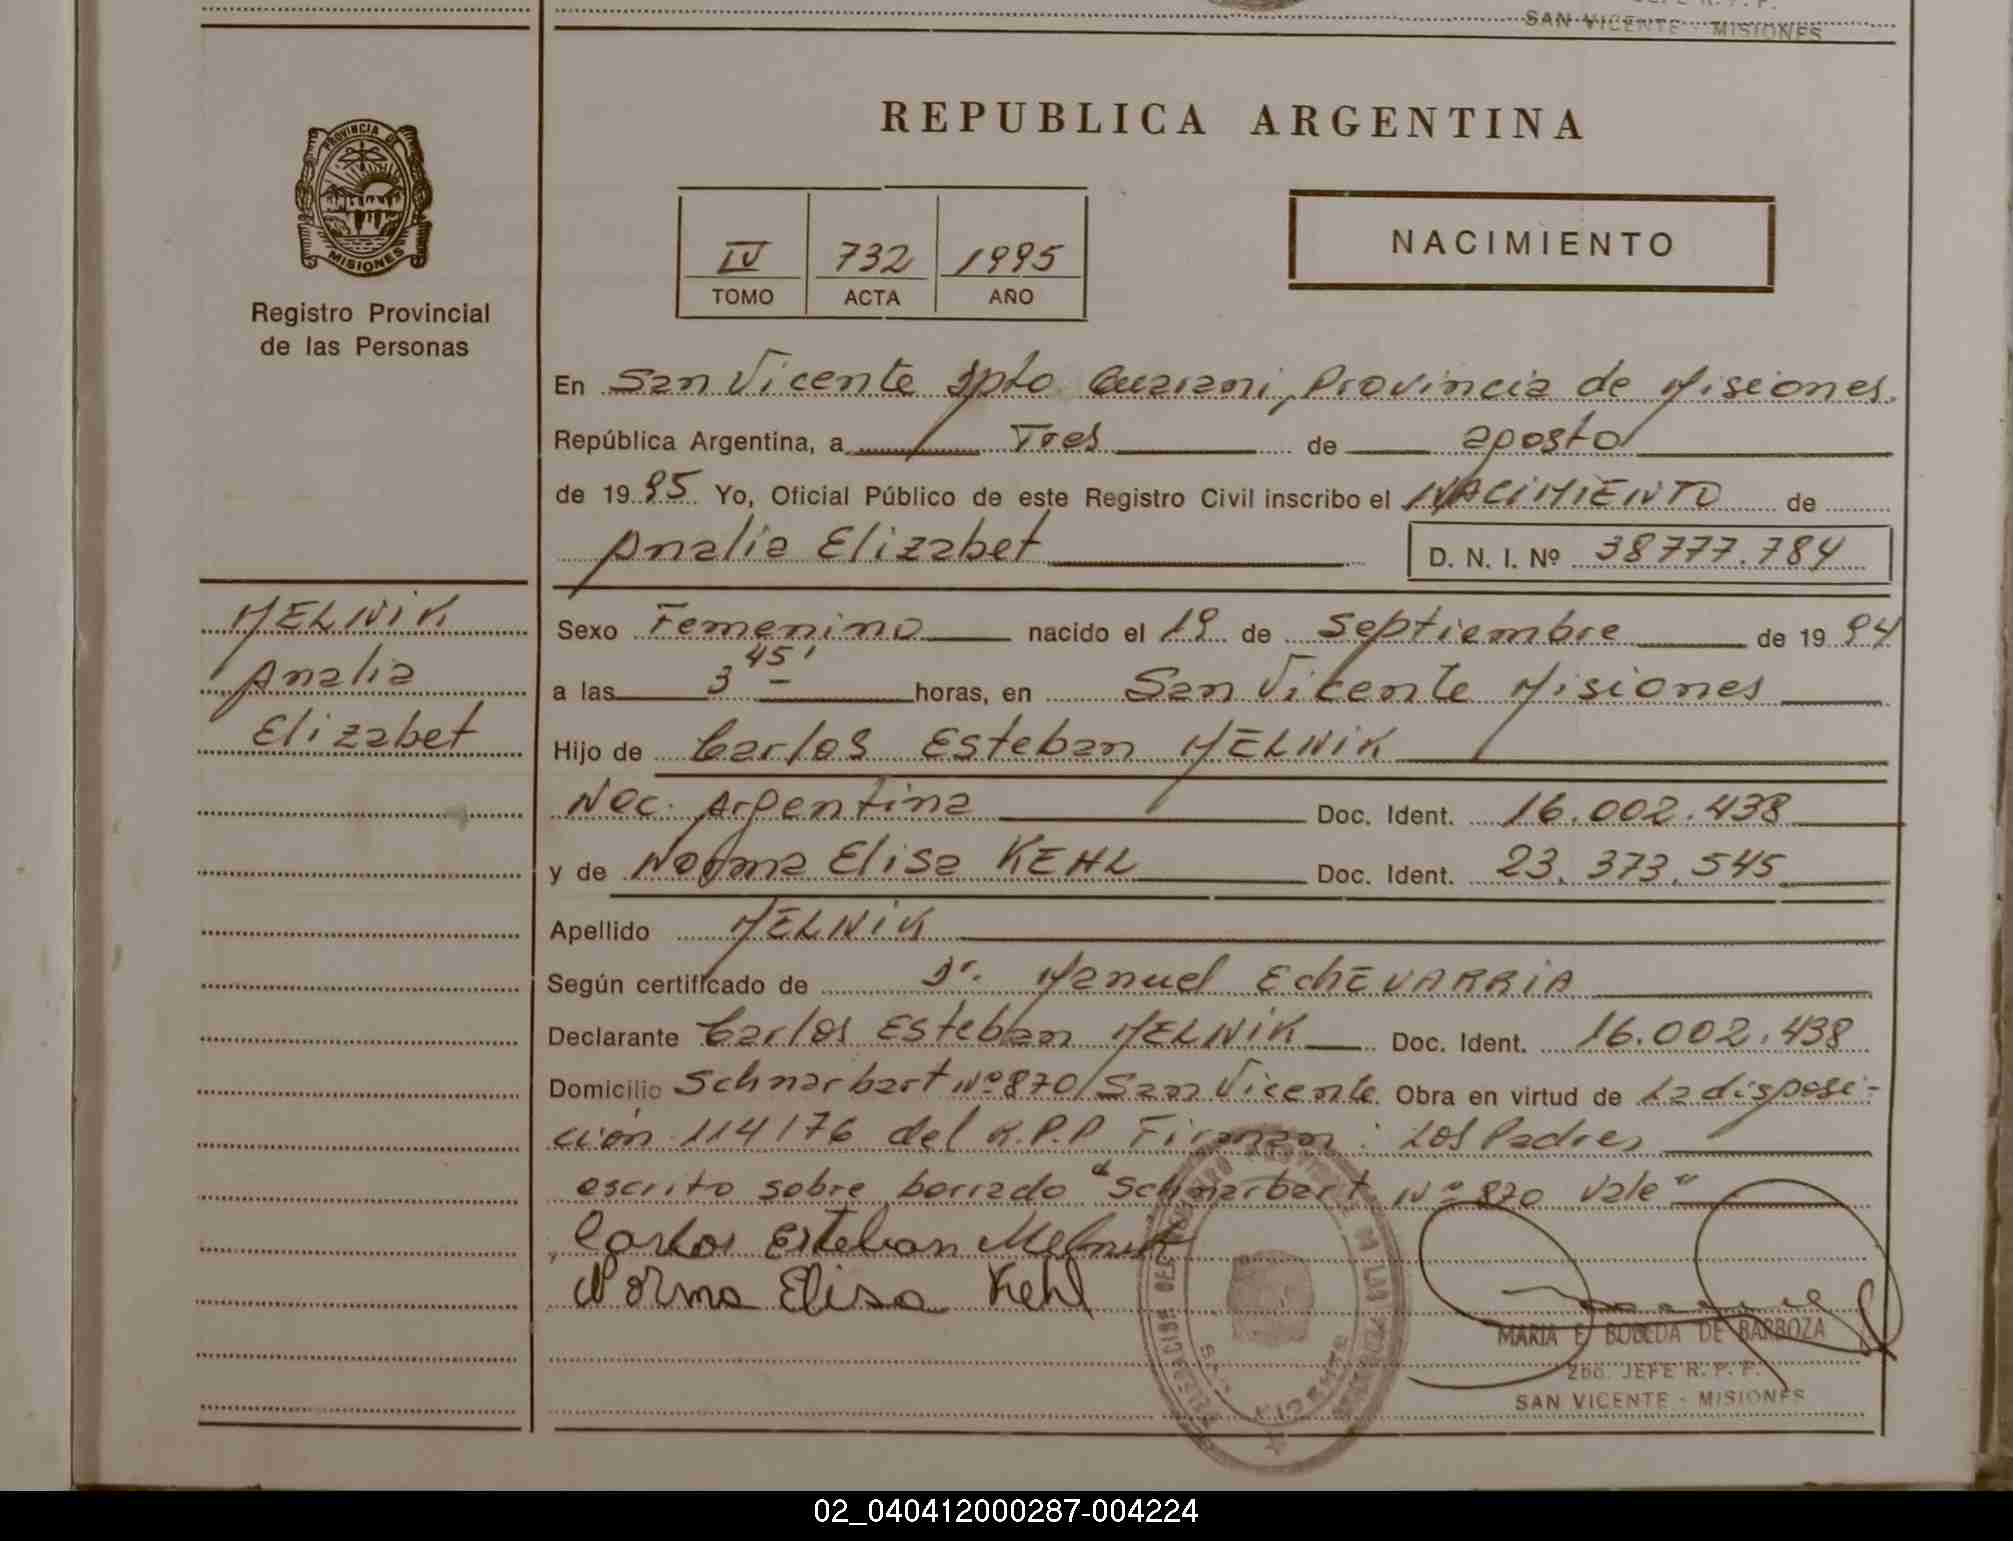 SAN VICENTE - MISIONES
REPUBLICA ARGENTINA
PROVINCIA DE
MISIONES
Registro Provincial
de las Personas
IV 732 1995
TOMO ACTA AÑO
NACIMIENTO
En San Vicente Dpto Guarani, Provincia de Misiones.
República Argentina, a Tres de agosto
de 1995 Yo, Oficial Público de este Registro Civil inscribo el NACIMIENTO de
Analia Elizabet D. N. I. Nº 38777.784
MELNiK
Analia
Elizabet
Sexo Femenino nacido el 19 de Septiembre de 1994
a las 3 45' horas, en San Vicente Misiones
Hijo de Carlos Esteban MELNiK
Nac. Argentina Doc. Ident. 16.002.438
y de Norma Elisa KEHL Doc. Ident. 23.373.545
Apellido MELNiK
Según certificado de Dr. Manuel EchEVARRiA
Declarante Carlos Esteban MELNiK Doc. Ident. 16.002.438
Domicilio Schnarbart Nº 870 San Vicente. Obra en virtud de La disposi-
ción 114/76 del R.P.P Firman: Los Padres
escrito sobre borrado "Schnarbart Nº 870 Vale"
Carlos Esteban Melnik
Norma Elisa Kehl
MARIA E BOBEDA DE BARBOZA
2do. JEFE R. P. P.
SAN VICENTE - MISIONES
SAN VICENTE
02_040412000287-004224